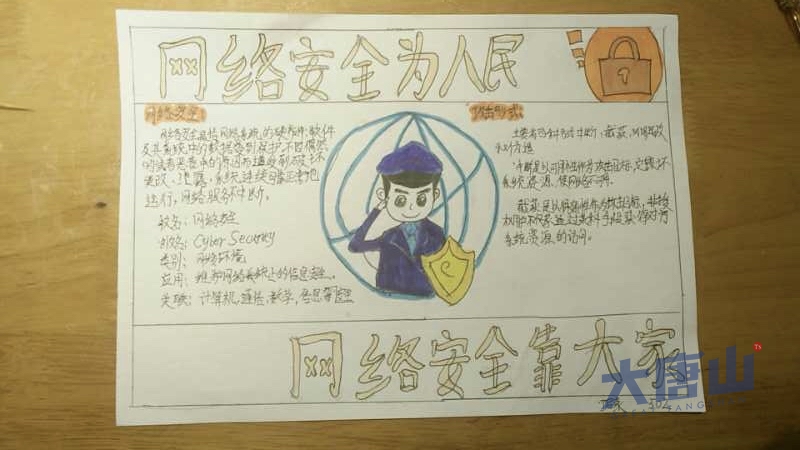 网络安全为人民
网络安全:
网络安全是指网络系统的硬件,软件
及其系统中的数据受到保护,不因偶然
的或者恶意的原因而遭受到破坏
更改、泄露,系统连续可靠正常地
运行,网络服务不中断。
网络安全
Cyber Security
类别:网络环境
应用:维护网络系统上的信息安全。
计算机,通信,数学,信息
攻击形式:
主要有四种方式中断,截获,
中断是以可用性作为攻击目标,它毁坏
系统资源,使网络不可用。
截获是以保密性作为攻击目标,非授
权用户
系统资源的访问。
网络安全靠大家
大唐山
302